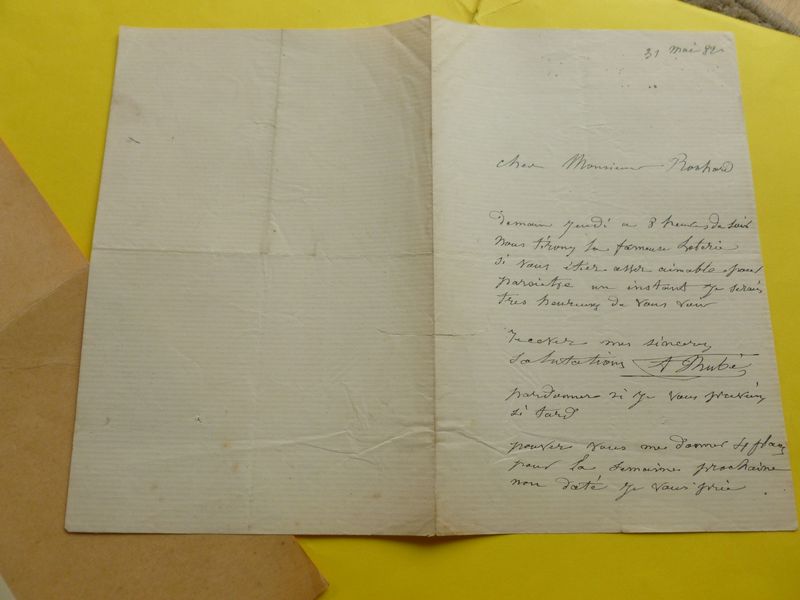 31 mai 82
cher Monsieur
demain jeudi a 8 heures du soir
nous tirons la fameuse loterie
si vous étier asser aimable pour
paroitre un instant je serais
tres heureux de vous voir
recever mes sinceres
salutations A Rubé
pardonner si je vous previens
si tard
pouver vous me donner 4
pour la semaine prochaine
non daté je vous prie